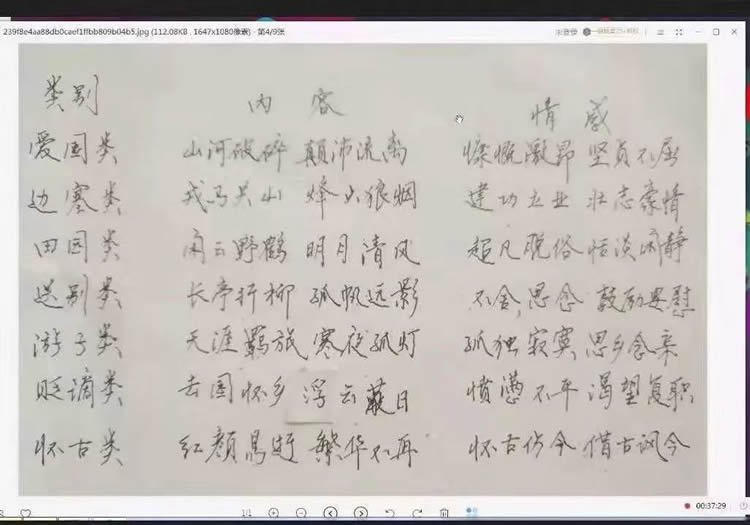 239f8e4aa88db0caef1ffbb809b04b5.jpg (112.08KB , 1647x1080像素) - 第4/9张 未登录
类别 内容 情感
爱国类 山河破碎 颠沛流离 慷慨激昂 坚贞不屈
边塞类 戎马关山 烽火狼烟 建功立业 壮志豪情
田园类 闲云野鹤 明月清风 超凡脱俗 恬淡闲静
送别类 长亭折柳 孤帆远影 不舍思念 鼓励安慰
游子类 天涯羁旅 寒夜孤灯 孤独寂寞 思乡念亲
贬谪类 去国怀乡 浮云蔽日 愤懑不平 渴望复职
怀古类 红颜易逝 繁华不再 怀古伤今 借古讽今
1/1
00:37:29